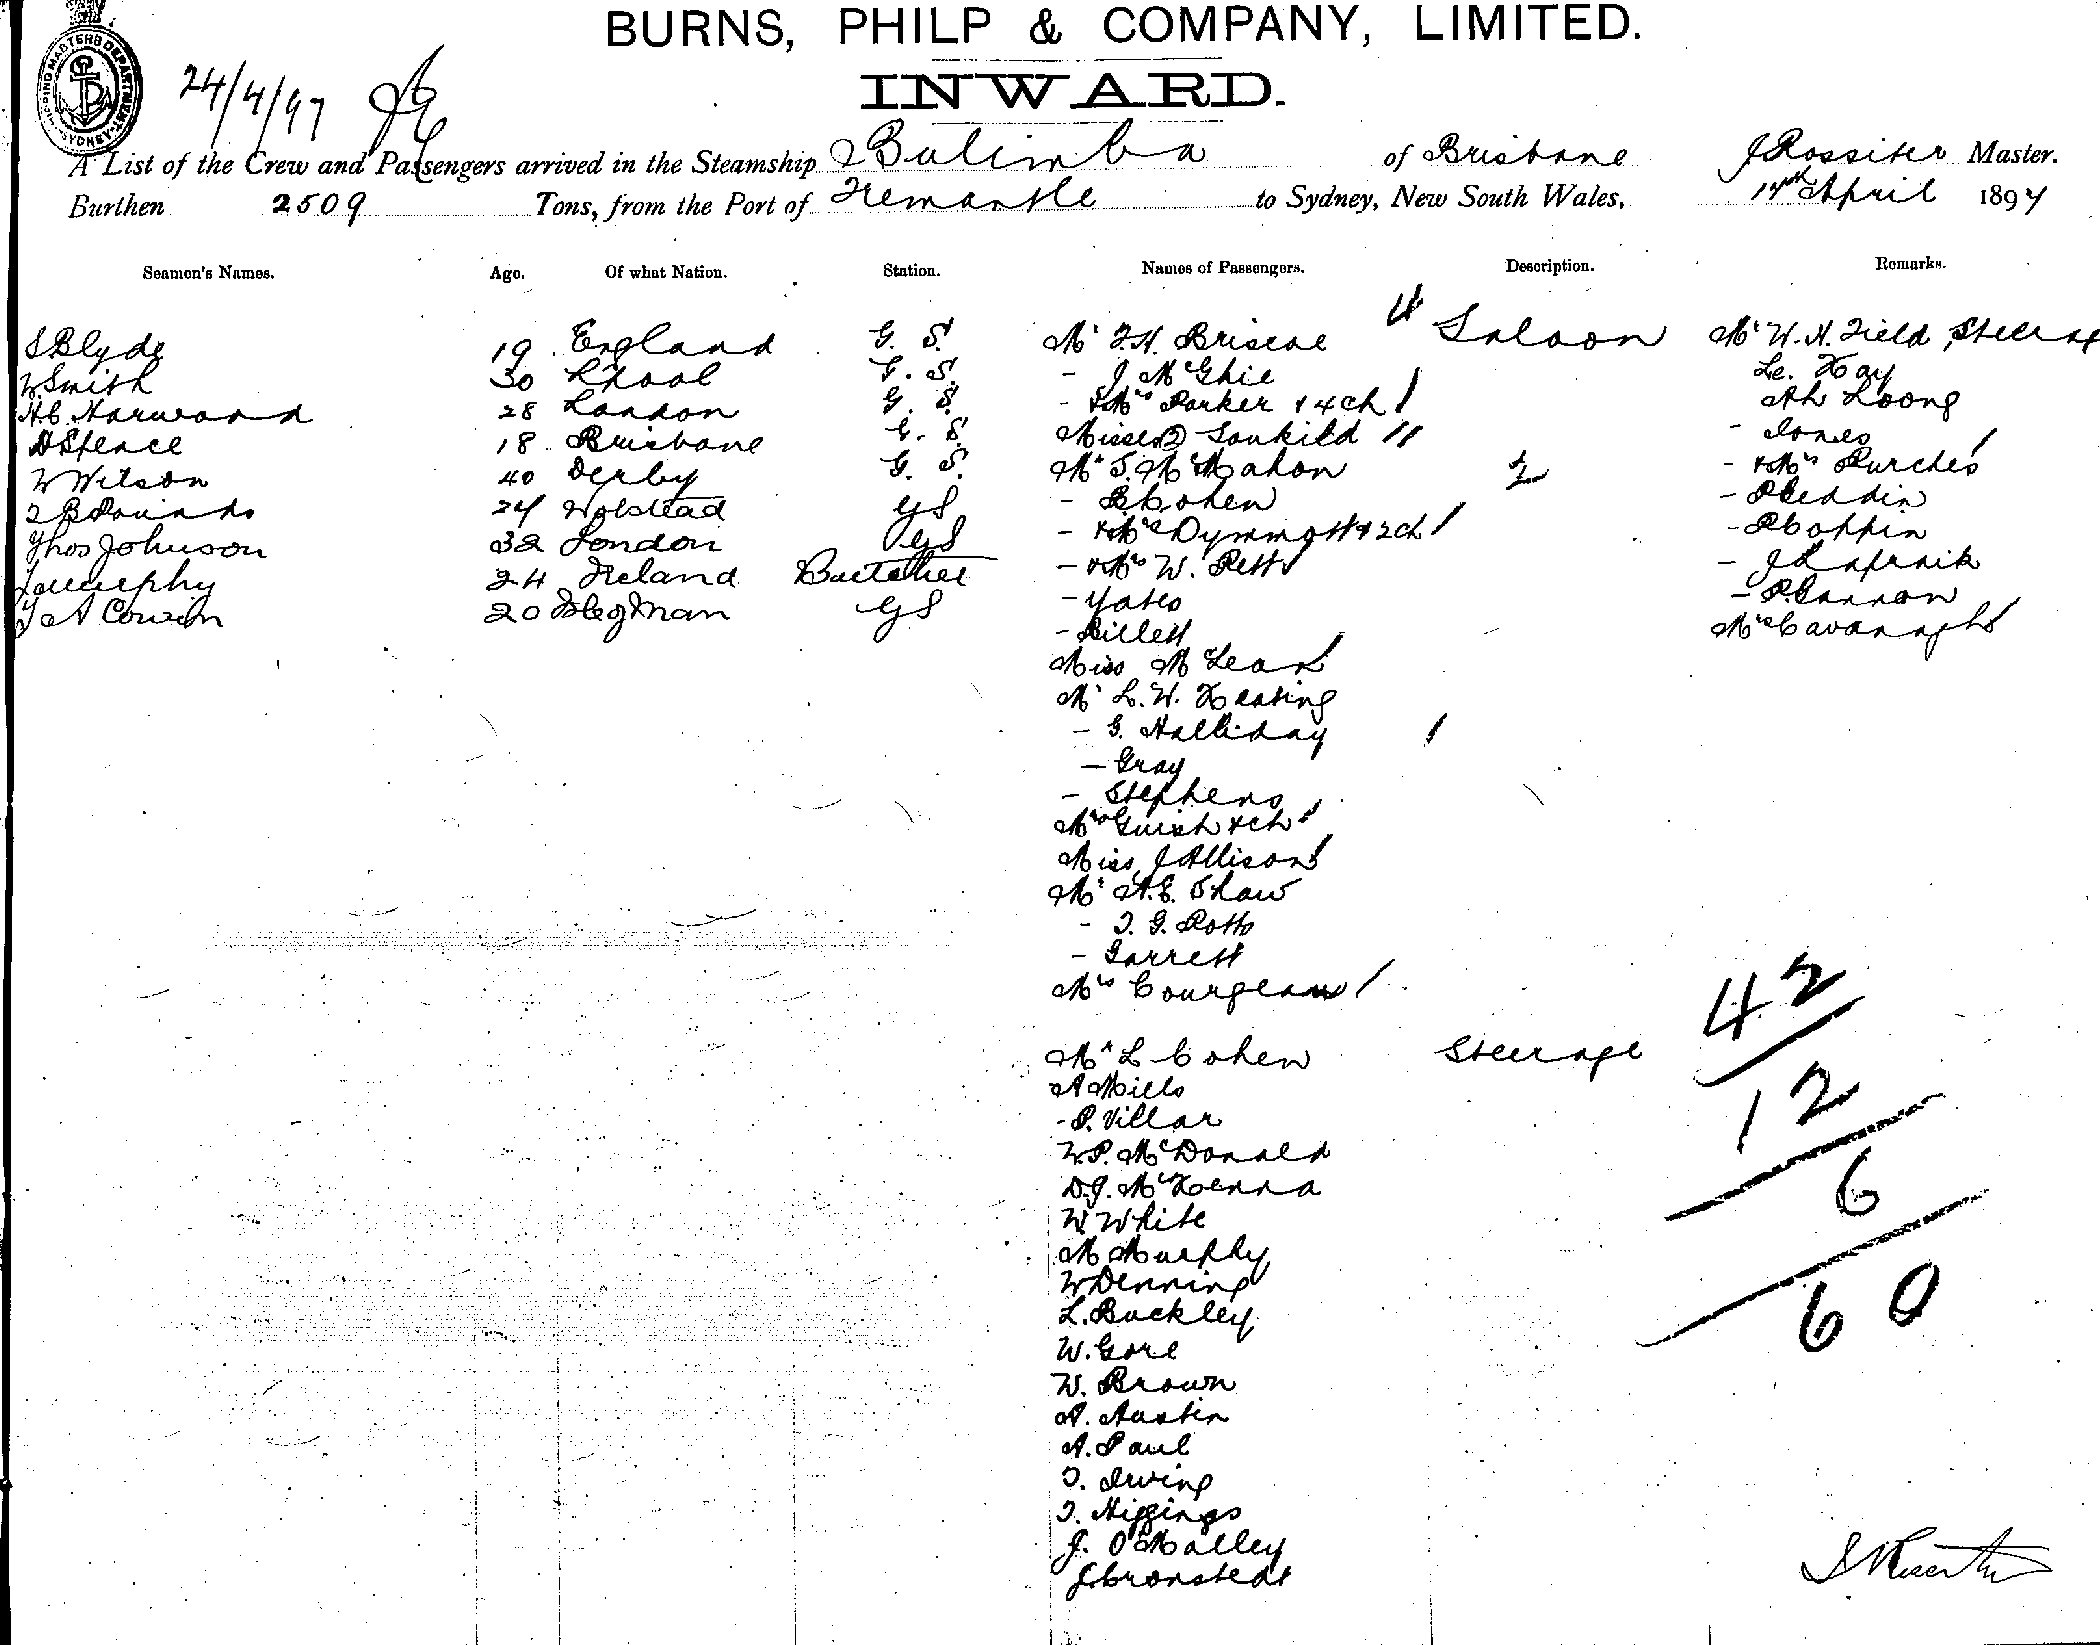 BURNS, PHILP & COMPANY, LIMITED.
INWARD.
24/4/97
A List of the Crew and Passengers arrived in the Steamship Bulimba of Brisbane J Rossiter Master.
Burthen 2509 Tons, from the Port of Fremantle to Sydney, New South Wales, 14th April 1897
Seamen's Names. Age. Of what Nation. Station. Names of Passengers. Description. Remarks.
S Blyde 19 England G. S. Mr F.H. Briscoe 4 Saloon Mr W. H. Field, Steerag
W Smith 30 L'pool G. S. - J McGhie Le. Kay
H.C. Harwood 28 London G. S. - & Mrs Parker & 4 ch Ah Loong
A Spence 18 Brisbane G. S. Misses 2 - Jones
W Wilson 40 Derby G. S. Mr T. McMahon 2 - & Mrs Purches
24 G S - B Cohen - P Leddin
Thos Johnson 32 London G S - & Mrs Dymmott & 2 ch - P Coppin
Murphy 24 Ireland Butcher - & Mrs W. Pett - J Lapraik
T A Cowen 20 I of Man G S - Yates - P. Cannon
- Billett Mrs Cavanagh
Miss McLean
Mr L. W. Keating
- G. Halliday
- Gray
- Stephens
Mrs Guish & ch
Miss J Allison
Mr A. E. Shaw
- T. G. Potts
- Garrett
Mrs Courgeau
42
Mr L Cohen Steerage
A Mills 12
- P. Villar
W.P. McDonald
D.J. McKenna 6
W White
M Murphy
W Denning
L. Buckley 60
W. Gore
W. Brown
A. Austin
A. Paul
T. Irving
T. Higgings
J. O'Malley
J. Cronstedt